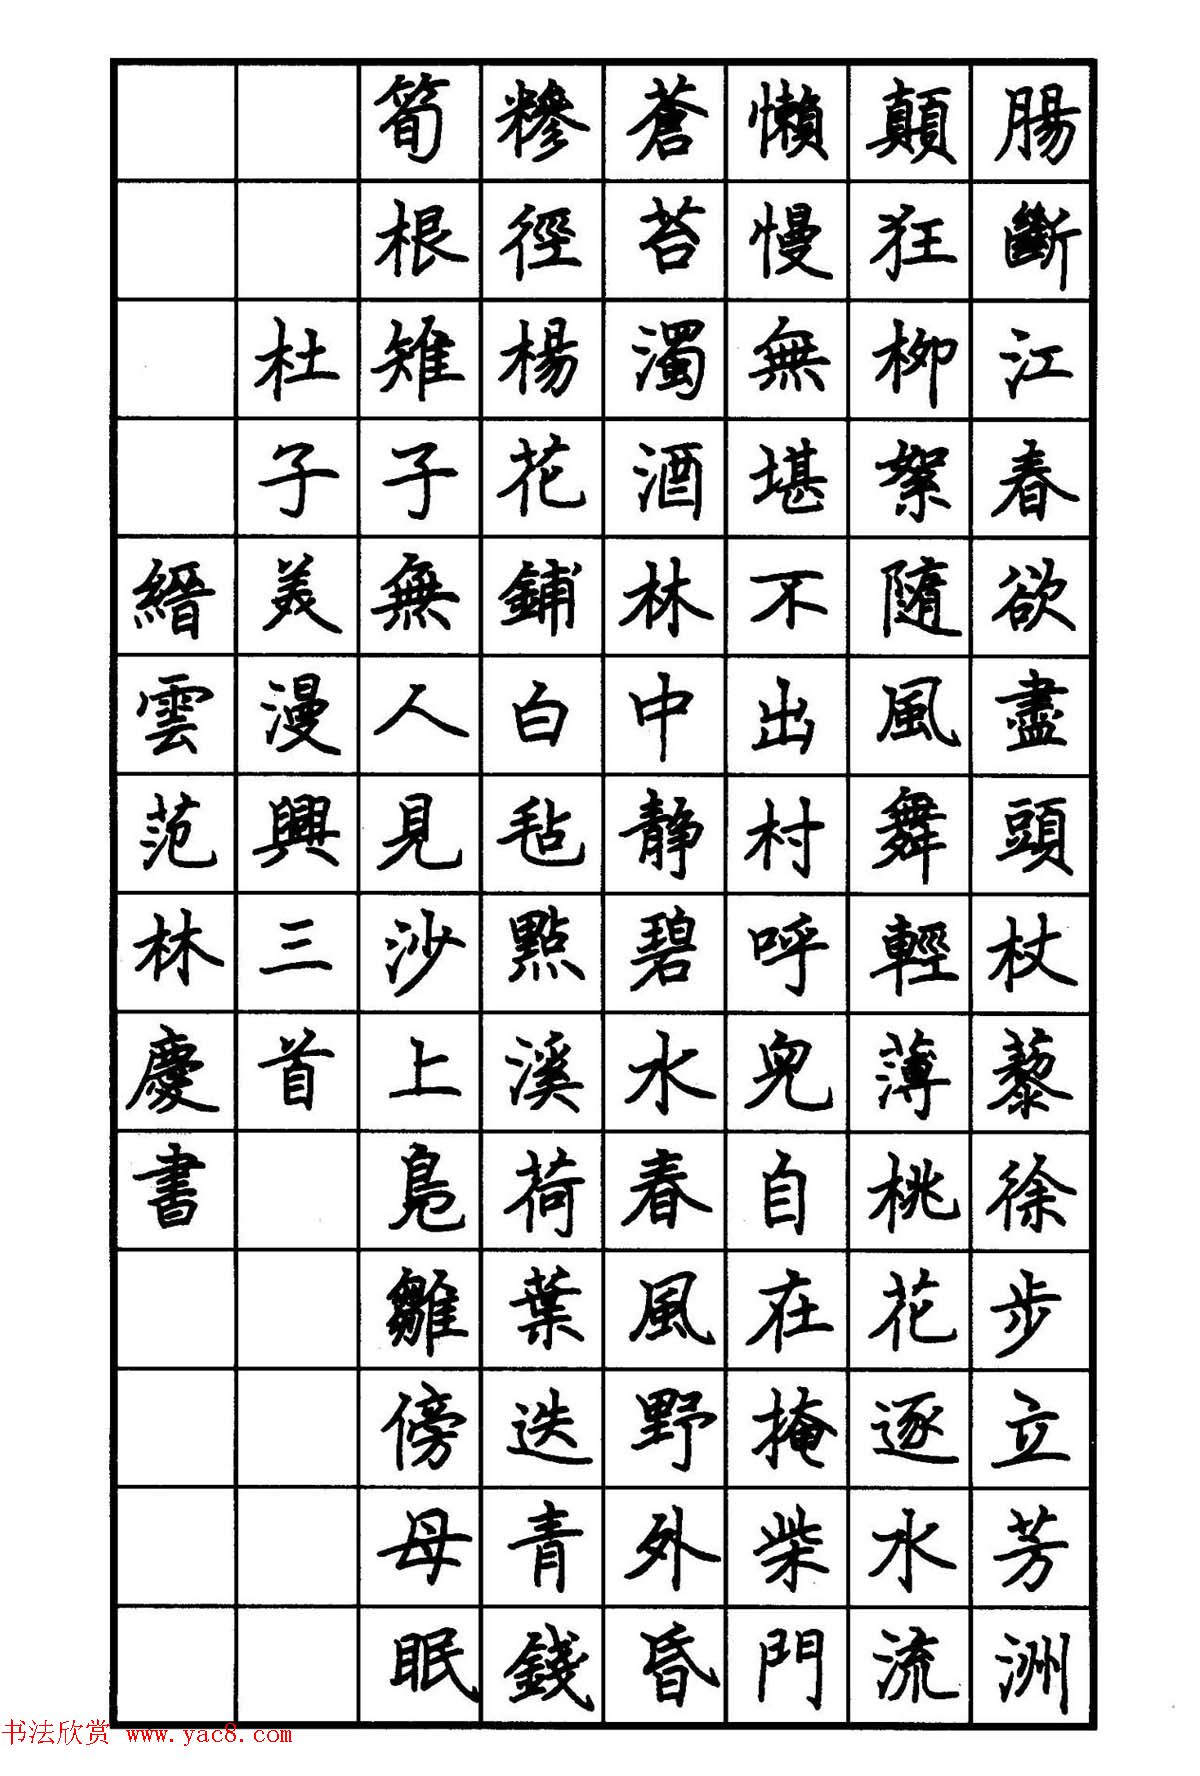 腸斷江春欲盡頭杖藜徐步立芳洲
顛狂柳絮隨風舞輕薄桃花逐水流
懶慢無堪不出村呼兒自在掩柴門
蒼苔濁酒林中靜碧水春風野外昏
糝徑楊花鋪白氈點溪荷葉迭青錢
筍根雉子無人見沙上鳧雛傍母眠
杜子美漫興三首
縉雲范林慶書
书法欣赏 www.yac8.com